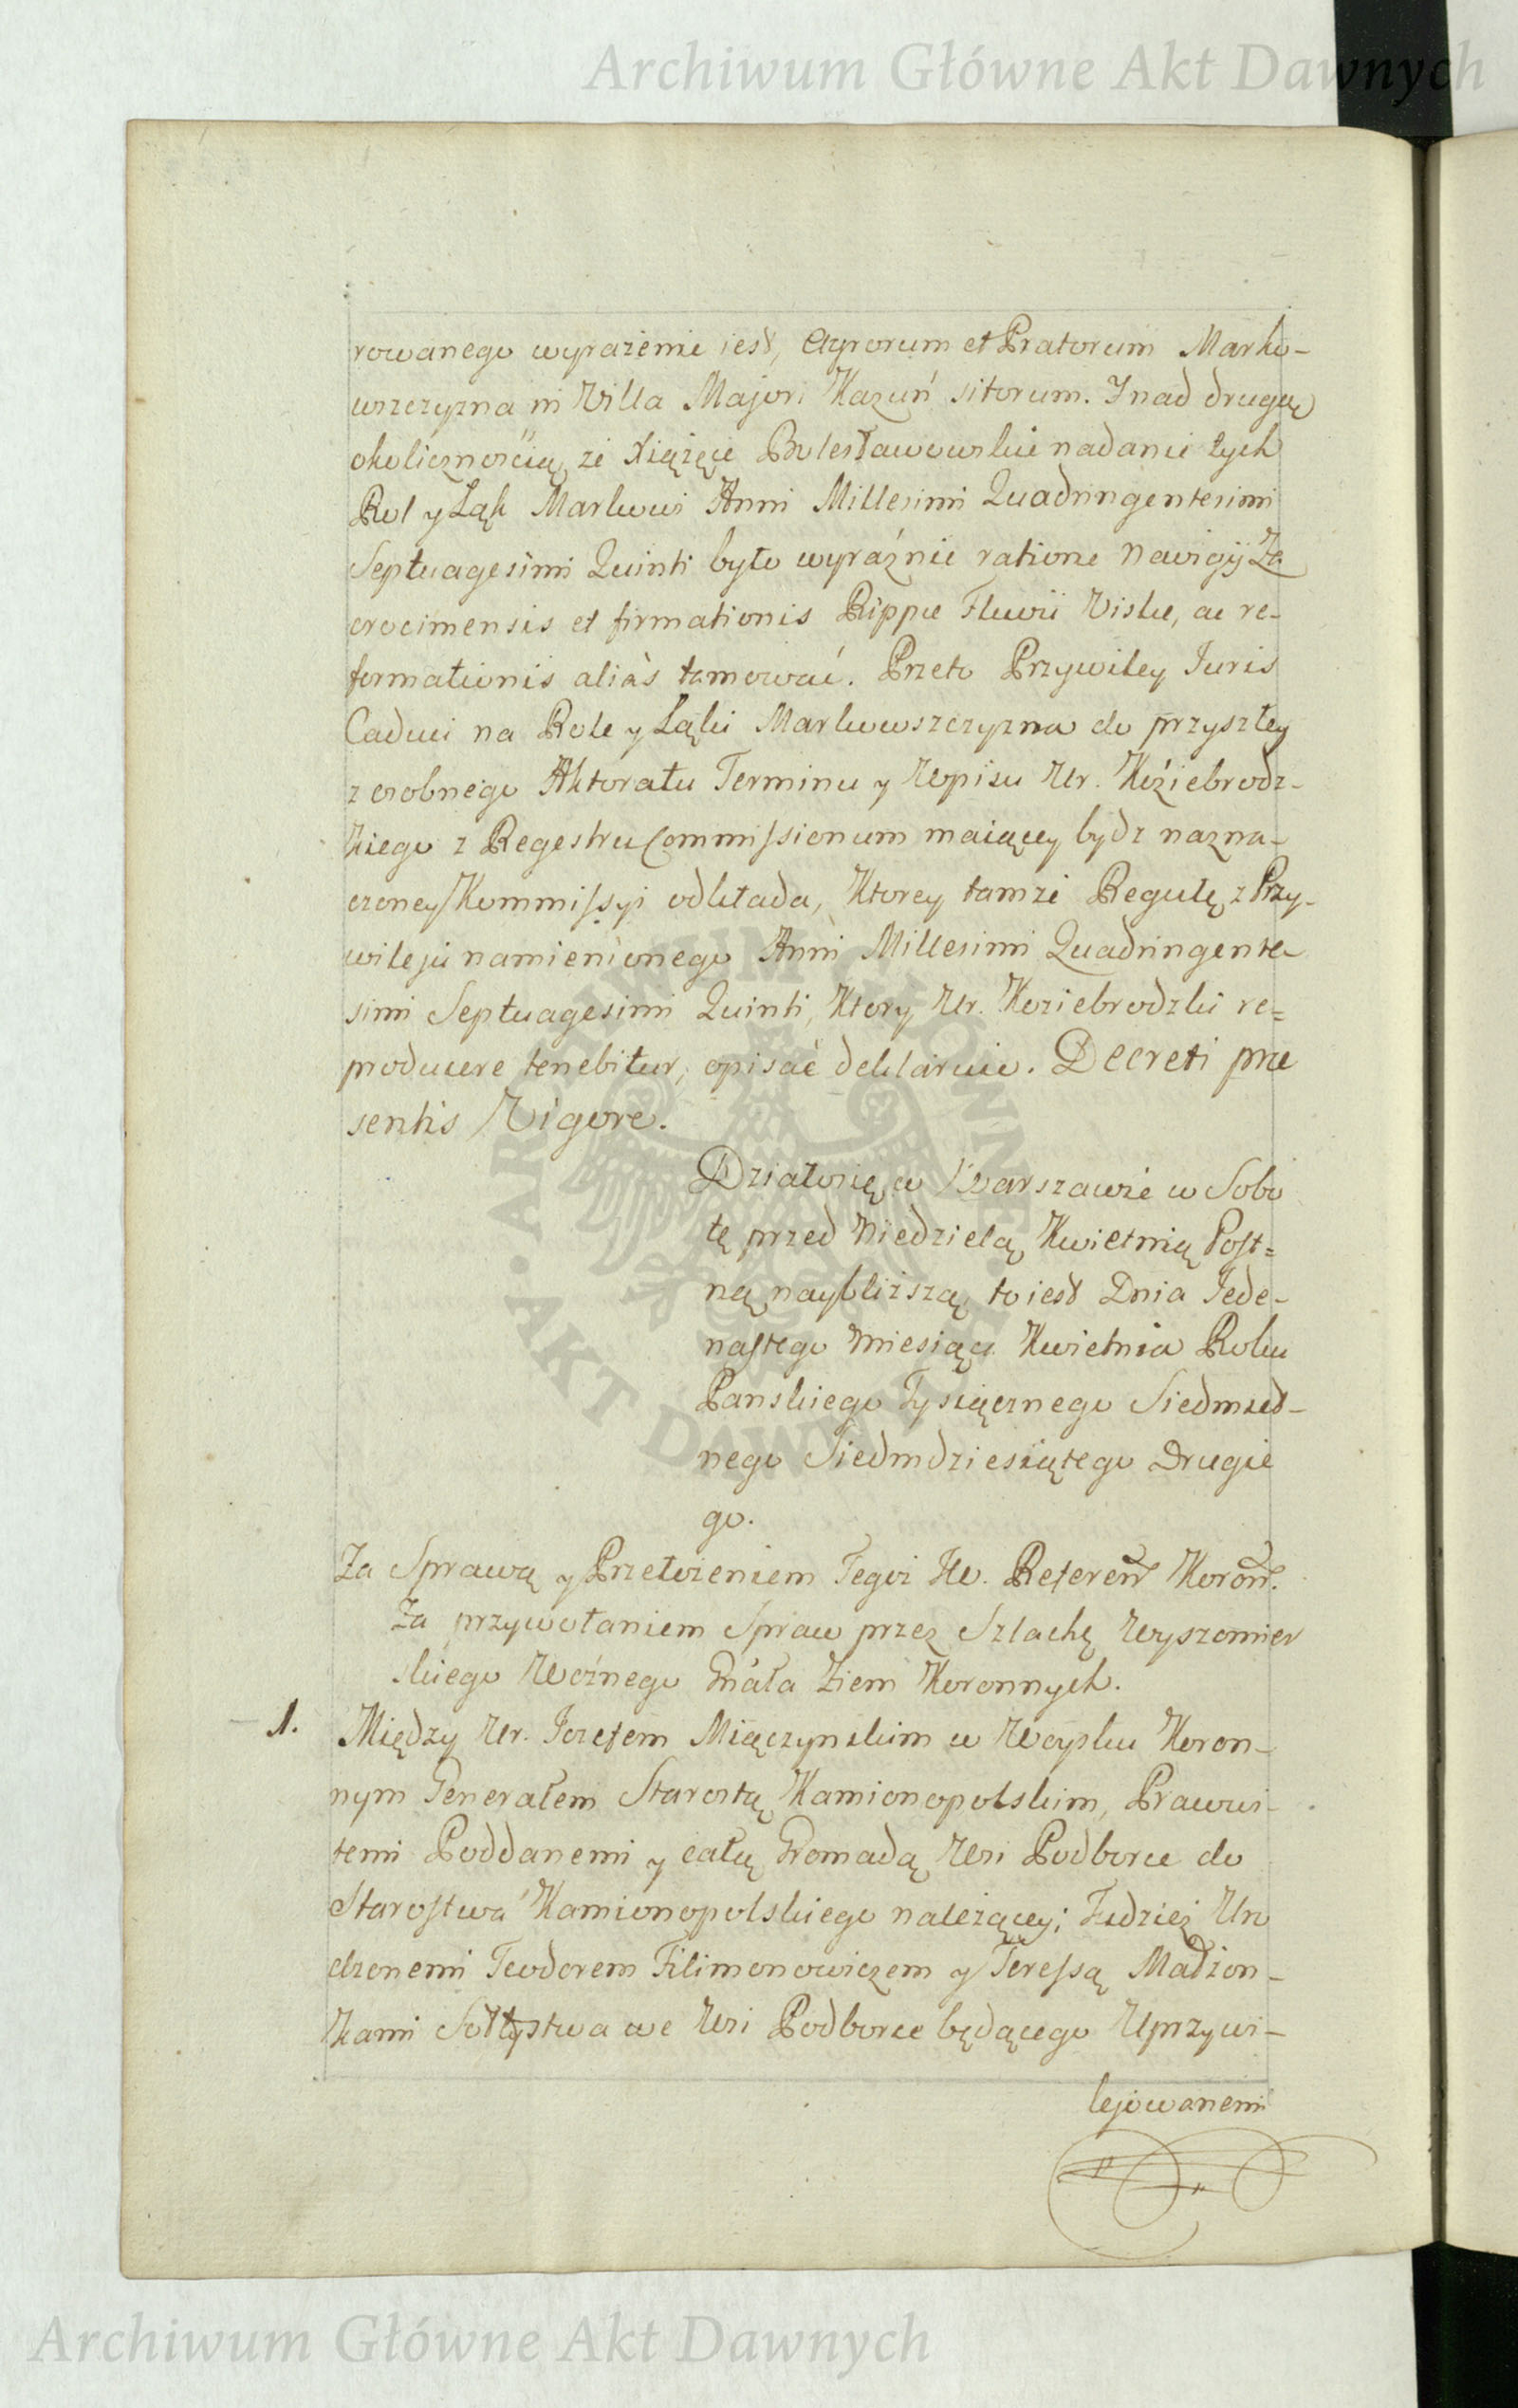 Archiwum Główne Akt Dawnych
rowanego wyrażenie iest, Agrorum et Pratorum Marko-
wszczyzna in Villa Majori Kazuń sitorum. Y nad drugą
okolicznością, że Xiążęce Bolesławowskie nadanie tych
Rol y Łąk Markowi Anni Millesimi Quadringentesimi
Septuagesimi Quinti było wyraźnie ratione Navigij Za
crocimensis et firmationis Rippæ Fluvii Vislæ, ac re-
formationis aliàs tamować. Przeto Przywiley Juris
Caduci na Role y Łąki Markowszczyzna do przyszłey
z osobnego Aktoratu Terminu y Wpisu Ur. Koziebrodz-
kiego z Regestru Commissionum maiącey bydz nazna-
czoney Kommissyi odkłada, Ktorey tamże Regułę z Przy-
wileju namienionego Anni Millesimi Quadringente-
simi Septuagesimi Quinti, Ktory Ur. Koziebrodzki re=
producere tenebitur, opisać deklaruie. Decreti præ
sentis Vigore.
Działo się w Warszawie w Sobo
tę przed Niedzielą Kwietnią Post=
ną naybliższą to iest Dnia Jede-
nastego Miesiąca Kwietnia Roku
Panskiego Tysiącznego Siedmset-
nego Siedmdziesiątego Drugie
go.
Za Sprawą y Przełożeniem Tegoż JW. Referen. Koron.
Za przywołaniem Spraw przez Szlachę Wyszomier
skiego Woźnego Gnała Ziem Koronnych.
1. Między Ur. Jozefem Miączynskim w Woysku Koron-
nym Generałem Starostą Kamionopolskim, Pracowi-
temi Poddanemi y całą Gromadą Wsi Podborce do
Starostwa Kamionopolskiego należącey; Tudzież Uro
dzonemi Teodorem Filimonowiczem y Teressą Małżon-
kami Sołtystwa we Wsi Podborce będącego Uprzywi-
lejowanemi
ARCHIWUM GŁÓWNE
AKT DAWNYCH
Archiwum Główne Akt Dawnych